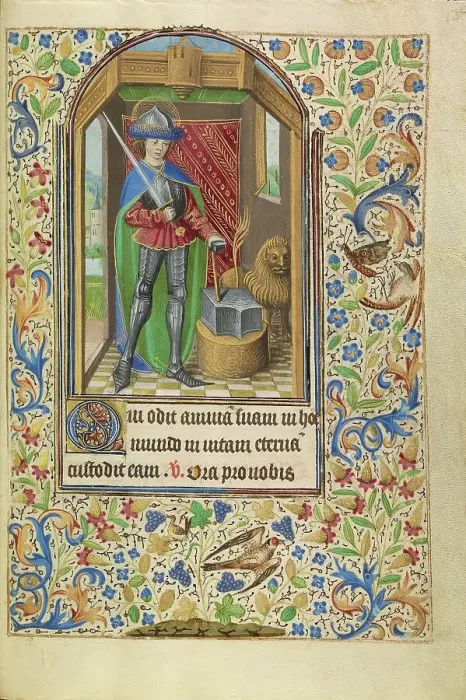 Qui odit animã suam in ho
mundo in vitam eternã
custodit eam .V. Ora pro nobis